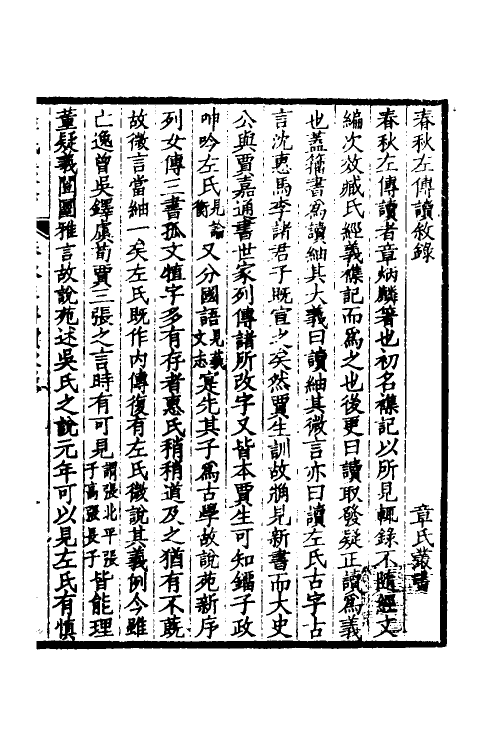 春秋左傳讀敘錄
章氏叢書
春秋左傳讀者章炳麟著也初名襍記以所見輒錄不隨經文
編次效臧氏經義襍記而爲之也後更曰讀取發疑正讀爲義
也蓋籀書爲讀紬其大義曰讀紬其微言亦曰讀左氏古字古
言沈惠馬李諸君子既宣之矣然賈生訓故㡿見新書而大史
公與賈嘉通書世家列傳諸所改字又皆本賈生可知鎦子政
呻吟左氏見論衡又分國語見藝文志寔先其子爲古學故說苑新序
列女傳三書孤文犆字多有存者惠氏稍稍道及之猶有不蔇
故微言當紬一矣左氏既作內傳復有左氏微說其義例今雖
亡逸曾吳鐸虞荀賈三張之言時有可見謂張北平張子高張長子皆能理
董疑義闓圛雅言故說苑述吳氏之說元年可以見左氏有慎